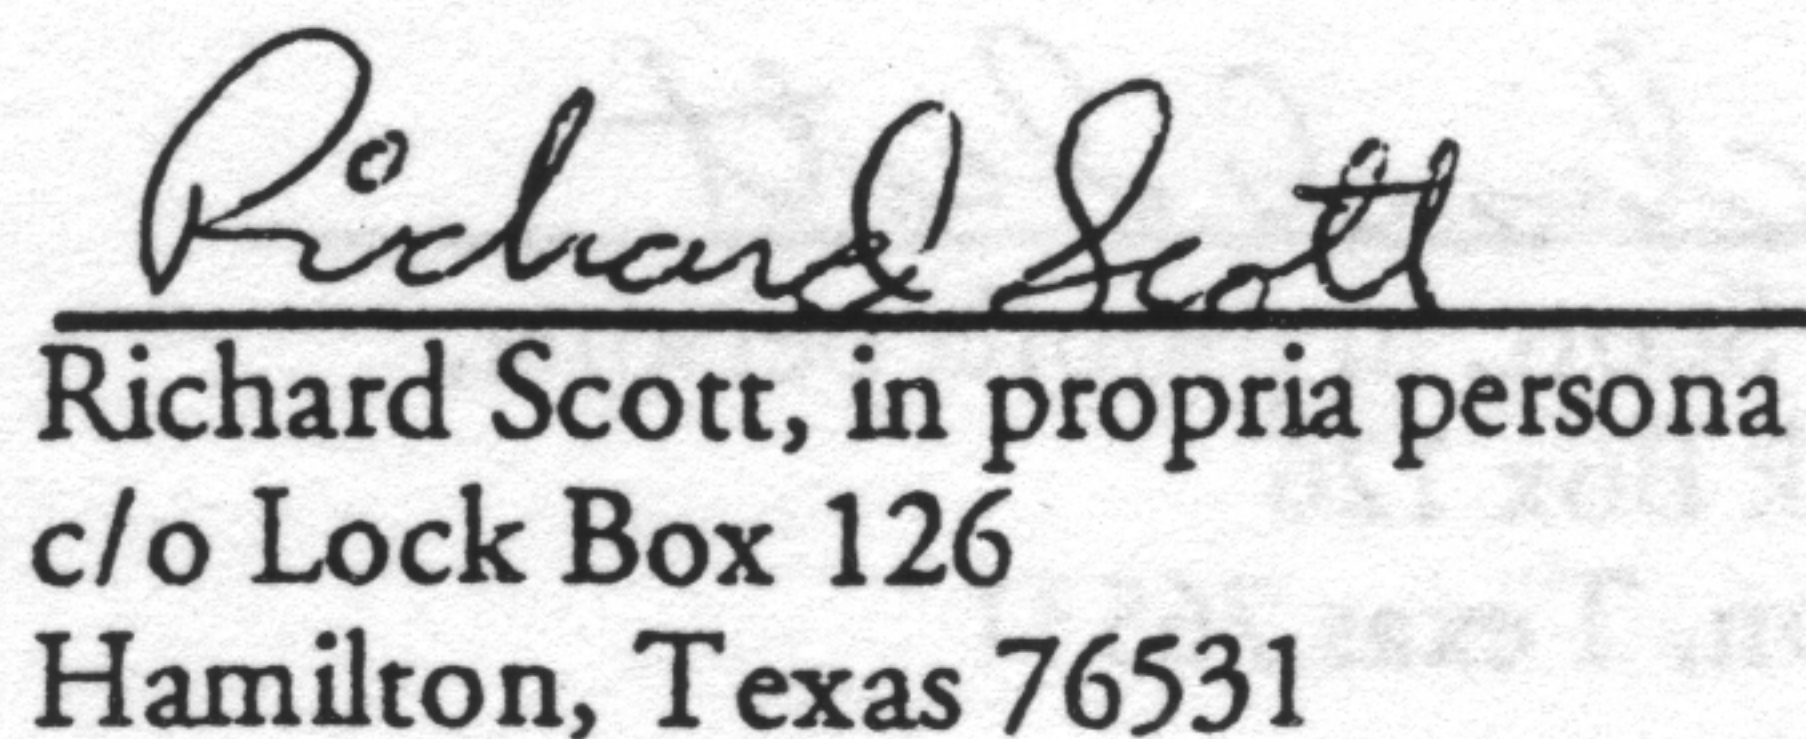 Richard Scott
Richard Scott, in propria persona
c/o Lock Box 126
Hamilton, Texas 76531